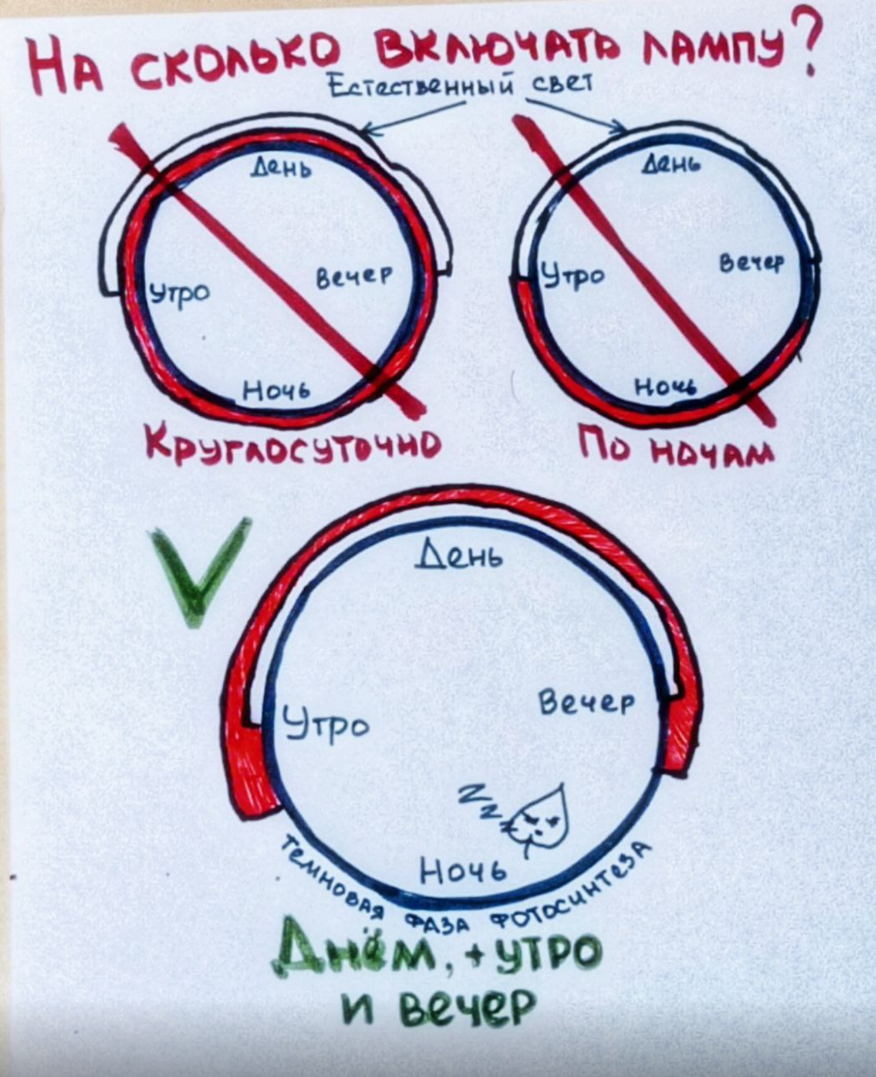 На сколько включать лампу?
Естественный свет
День
Утро
Вечер
Ночь
Круглосуточно
День
Утро
Вечер
Ночь
По ночам
День
Утро
Вечер
zzz
Ночь
темновая фаза фотосинтеза
Днём, + утро
и вечер